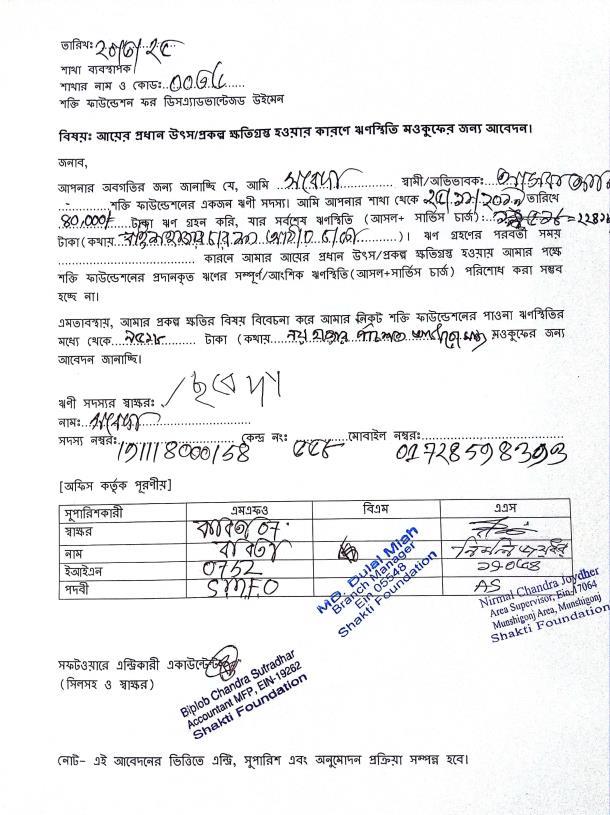 তারিখঃ
শাখা ব্যবস্থাপক
শাখার নাম ও কোডঃ
শক্তি ফাউন্ডেশন ফর ডিসএ্যাডভান্টেজড উইমেন
বিষয়ঃ আয়ের প্রধান উৎস/প্রকল্প ক্ষতিগ্রস্ত হওয়ার কারণে ঋণস্থিতি মওকুফের জন্য আবেদন।
জনাব,
আপনার অবগতির জন্য জানাচ্ছি যে, আমি সবেদা স্বামী/অভিভাবকঃ
শক্তি ফাউন্ডেশনের একজন ঋণী সদস্য। আমি আপনার শাখা থেকে তারিখে
80,000/ টাকা ঋণ গ্রহন করি, যার সর্বশেষ ঋণস্থিতি (আসল+ সার্ভিস চার্জ)ঃ
টাকা(কথায় )। ঋণ গ্রহণের পরবর্তী সময়
কারনে আমার আয়ের প্রধান উৎস/প্রকল্প ক্ষতিগ্রস্ত হওয়ায় আমার পক্ষে
শক্তি ফাউন্ডেশনের প্রদানকৃত ঋণের সম্পূর্ণ/আংশিক ঋণস্থিতি(আসল+সার্ভিস চার্জ) পরিশোধ করা সম্ভব
হচ্ছে না।
এমতাবস্থায়, আমার প্রকল্প ক্ষতির বিষয় বিবেচনা করে আমার নিকট শক্তি ফাউন্ডেশনের পাওনা ঋণস্থিতির
মধ্যে থেকে টাকা (কথায় নয় হাজার পাঁচশত মওকুফের জন্য
আবেদন জানাচ্ছি।
ঋণী সদস্যের স্বাক্ষরঃ ছবেদা
নামঃ সবেদা
সদস্য নম্বরঃ কেন্দ্র নং মোবাইল নম্বরঃ
[অফিস কর্তৃক পূরণীয়]
সুপারিশকারী এমএফও বিএম এএস
স্বাক্ষর
নাম
ইআইএন 0752
পদবী SMFO AS
MD. Dulal Miah
Branch Manager
Ein 05548
Shakti Foundation
Nirmal Chandra Joydher
Area Supervisor, Ein-17064
Munshigonj Area, Munshigonj
Shakti Foundation
সফটওয়ারে এন্ট্রিকারী একাউন্টেন্ট
(সিলসহ ও স্বাক্ষর)
Biplob Chandra Sutradhar
Accountant MFP, EIN-19262
Shakti Foundation
নোট- এই আবেদনের ভিত্তিতে এন্ট্রি, সুপারিশ এবং অনুমোদন প্রক্রিয়া সম্পন্ন হবে।